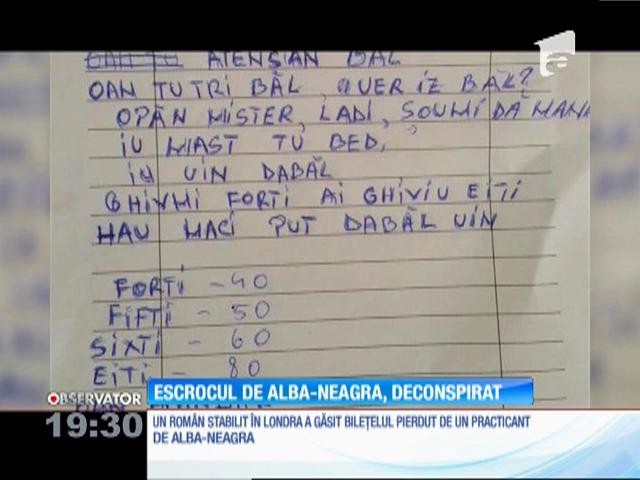 OAN TU ATENȘĂN BĂL
OAN TU TRI BĂL, QUER IZ BĂL?
OPĂN MISTER, LADI, ȘOUMI DĂ MANI
IU MAST TU BED,
IU UIN DABĂL
GHIVMI FORTI AI GHIVIU EITI
HAU MACI PUT DABĂL UIN
FORTI - 40
FIFTI - 50
SIXTI - 60
EITI - 80
OBSERVATOR
19:30
ESCROCUL DE ALBA-NEAGRA, DECONSPIRAT
UN ROMÂN STABILIT ÎN LONDRA A GĂSIT BILEȚELUL PIERDUT DE UN PRACTICANT
DE ALBA-NEAGRA